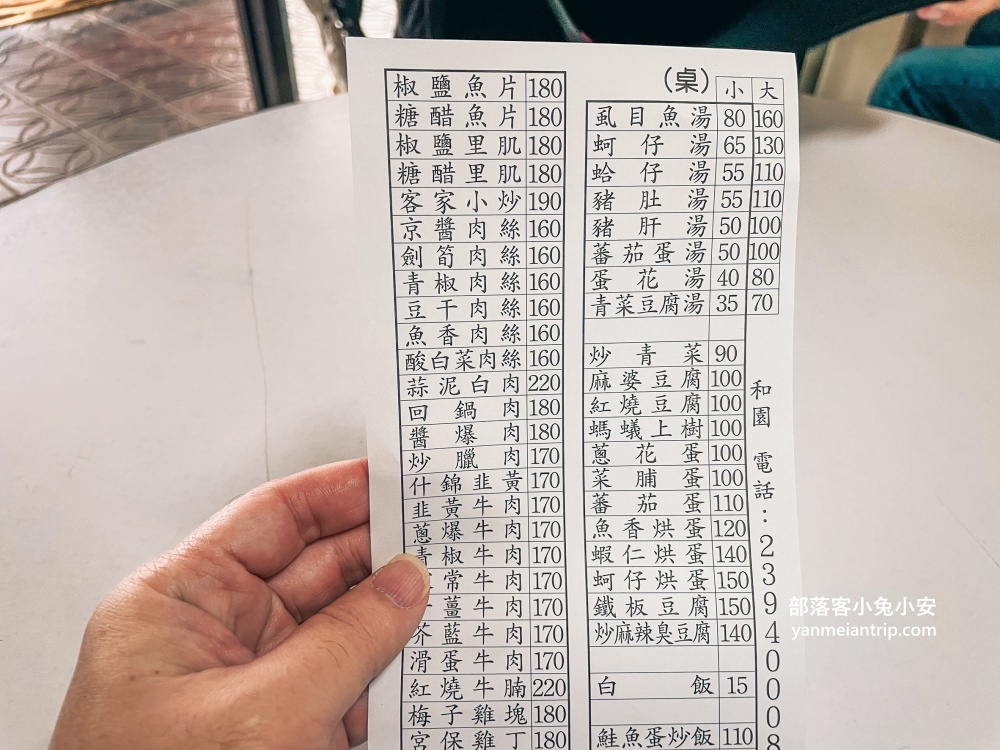 椒鹽魚片 180
糖醋魚片 180
椒鹽里肌 180
糖醋里肌 180
客家小炒 190
京醬肉絲 160
劍筍肉絲 160
青椒肉絲 160
豆干肉絲 160
魚香肉絲 160
酸白菜肉絲 160
蒜泥白肉 220
回鍋肉 180
醬爆肉 180
炒臘肉 170
什錦韭黃 170
韭黃牛肉 170
蔥爆牛肉 170
青椒牛肉 170
常牛肉 170
薑牛肉 170
芥藍牛肉 170
滑蛋牛肉 170
紅燒牛腩 220
梅子雞塊 180
宮保雞丁 180
(桌) 小 大
虱目魚湯 80 160
蚵仔湯 65 130
蛤仔湯 55 110
豬肚湯 55 110
豬肝湯 50 100
蕃茄蛋湯 50 100
蛋花湯 40 80
青菜豆腐湯 35 70
炒青菜 90
麻婆豆腐 100
紅燒豆腐 100
螞蟻上樹 100
蔥花蛋 100
菜脯蛋 100
蕃茄蛋 110
魚香烘蛋 120
蝦仁烘蛋 140
蚵仔烘蛋 150
鐵板豆腐 150
炒麻辣臭豆腐 140
白飯 15
鮭魚蛋炒飯 110
和園 電話:23940008
部落客小兔小安
yanmeiantrip.com